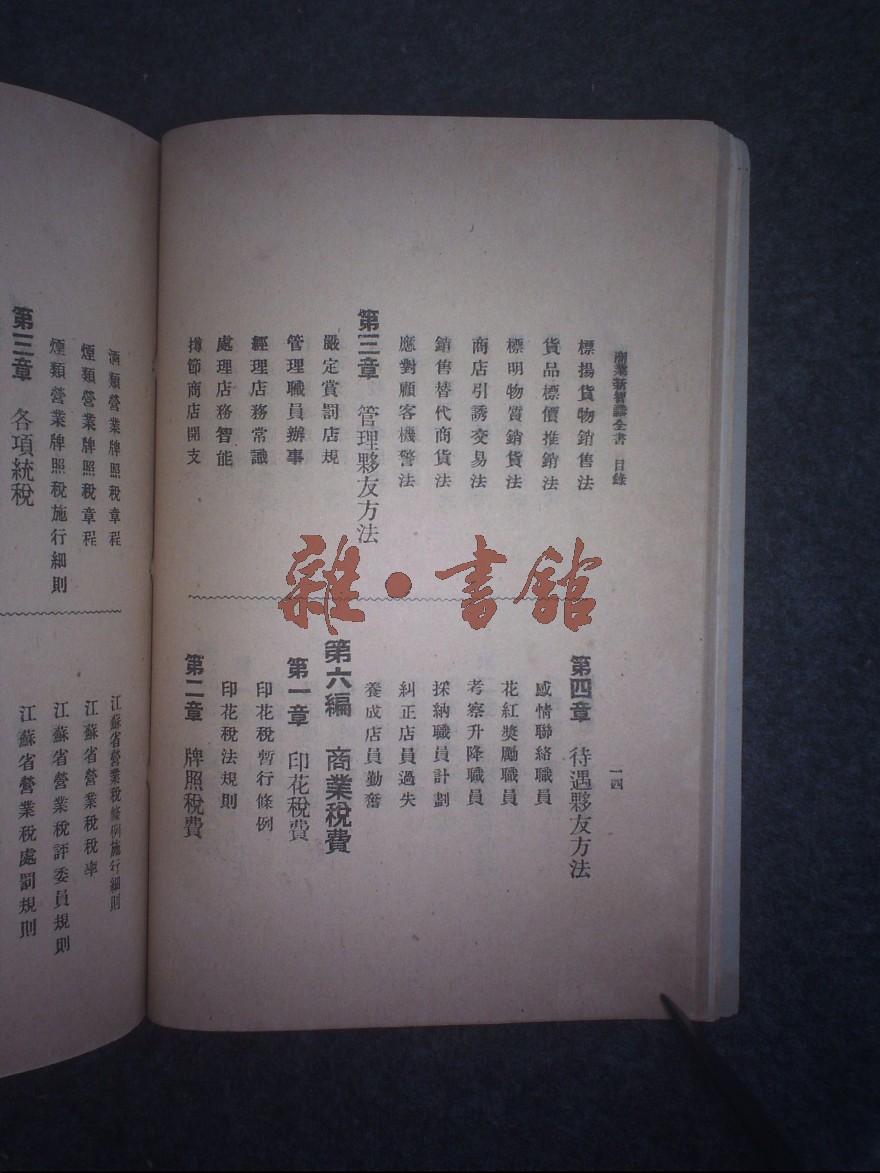 商業新智識全書 目錄 一四
標揚貨物銷售法
貨品標價推銷法
標明物質銷貨法
商店引誘交易法
銷售替代商貨法
應對顧客機警法
第三章 管理夥友方法
嚴定賞罰店規
管理職員辦事
經理店務常識
處理店務智能
撙節商店開支
第四章 待遇夥友方法
感情聯絡職員
花紅獎勵職員
考察升降職員
採納職員計劃
糾正店員過失
養成店員勤奮
第六編 商業稅費
第一章 印花稅費
印花稅暫行條例
印花稅法規則
第二章 牌照稅費
酒類營業牌照稅章程
煙類營業牌照稅章程
煙類營業牌照稅施行細則
第三章 各項統稅
江蘇省營業稅條例施行細則
江蘇省營業稅稅率
江蘇省營業稅評委員規則
江蘇省營業稅處罰規則
雜·書館